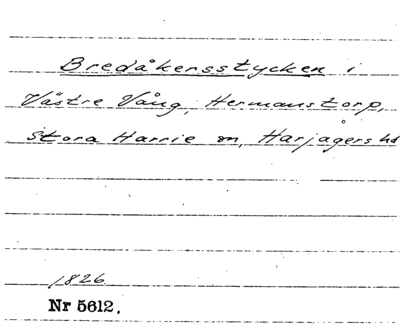 Bredåkersstycken i
Västre Vång, Hermanstorp,
Stora Harrie sn, Harjagers hd
1826
Nr 5612.